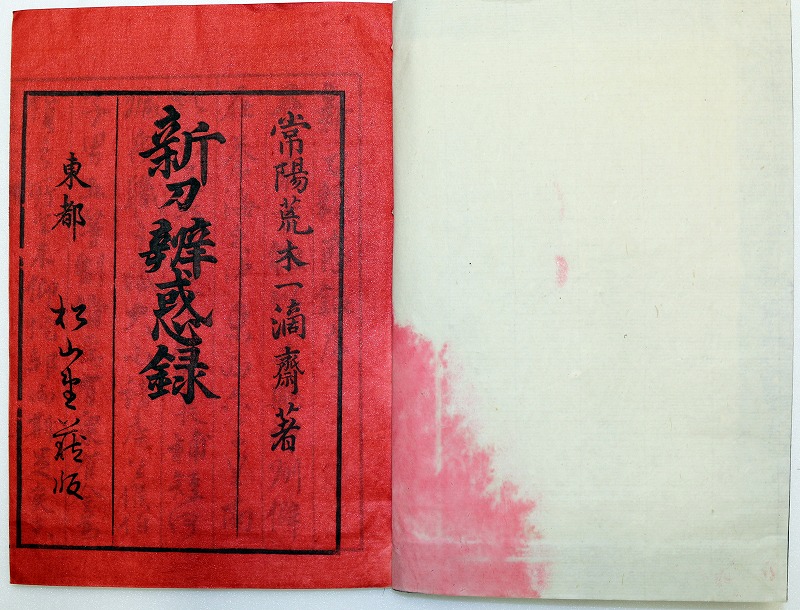 常陽荒木一滴齋著
新刀辨惑録
東都 松山堂藏版